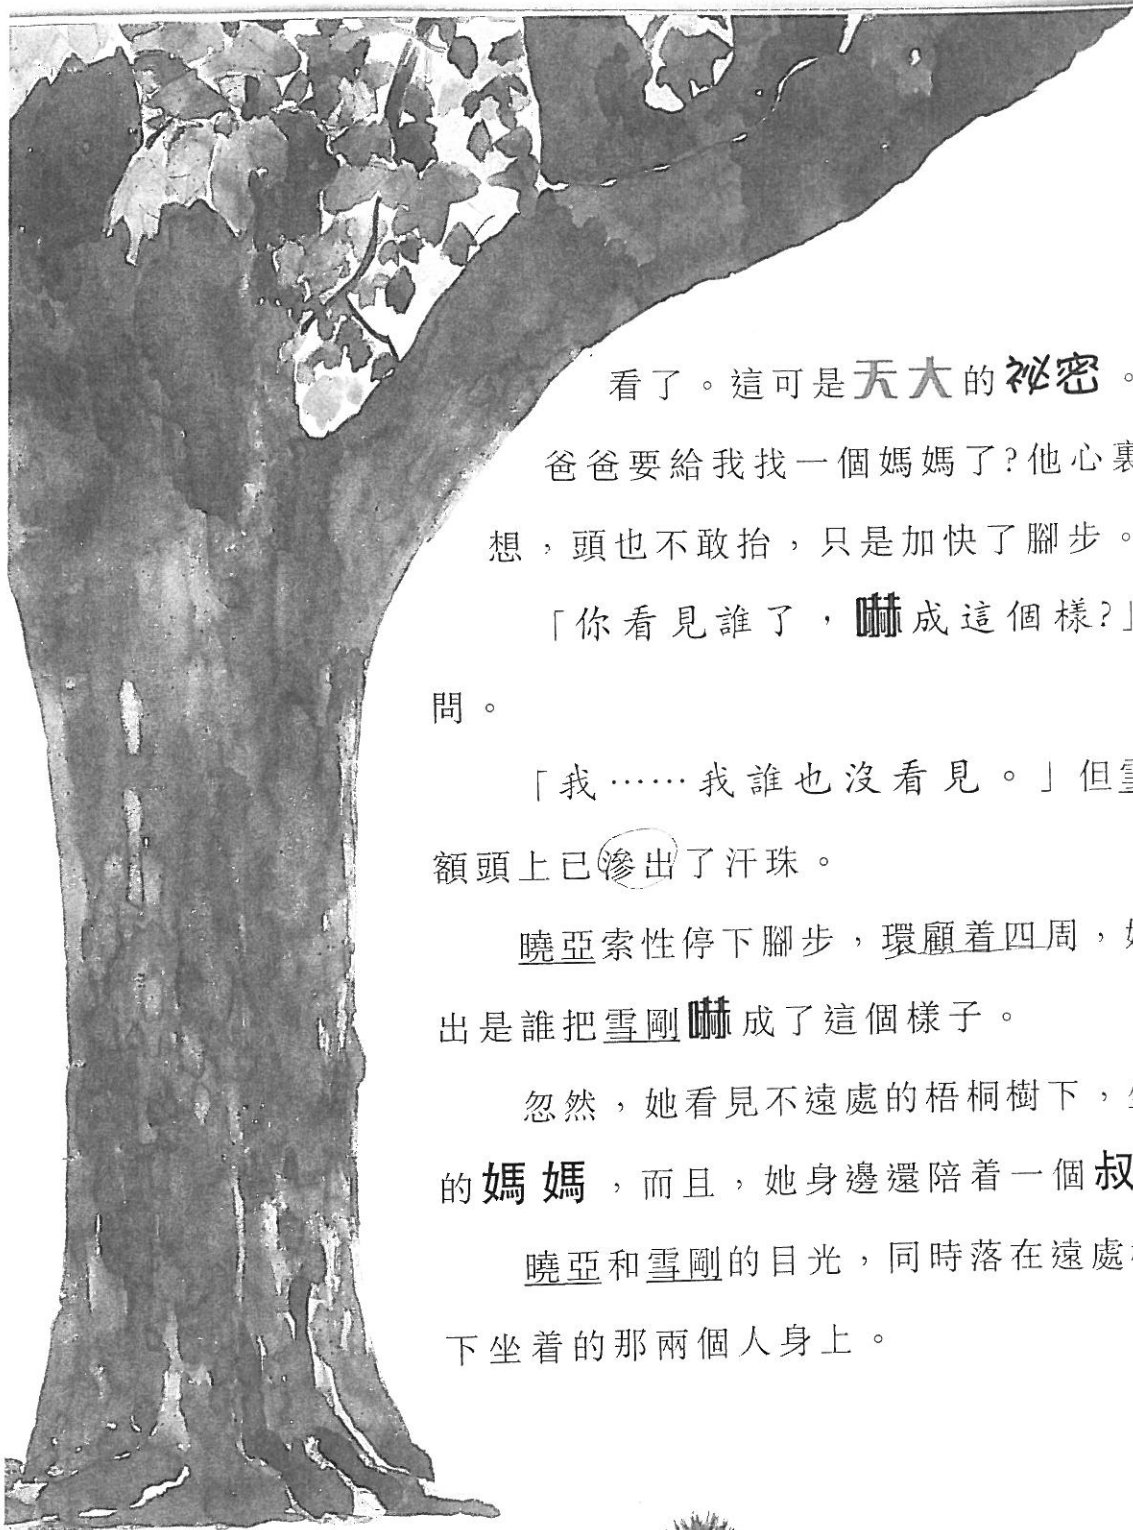 看了。這可是天大的祕密。
爸爸要給我找一個媽媽了?他心裏
想,頭也不敢抬,只是加快了腳步。
「你看見誰了,嚇成這個樣?」
問。
「我……我誰也沒看見。」但
額頭上已滲出了汗珠。
曉亞索性停下腳步,環顧着四周,
出是誰把雪剛嚇成了這個樣子。
忽然,她看見不遠處的梧桐樹下,
的媽媽,而且,她身邊還陪着一個叔
曉亞和雪剛的目光,同時落在遠處
下坐着的那兩個人身上。